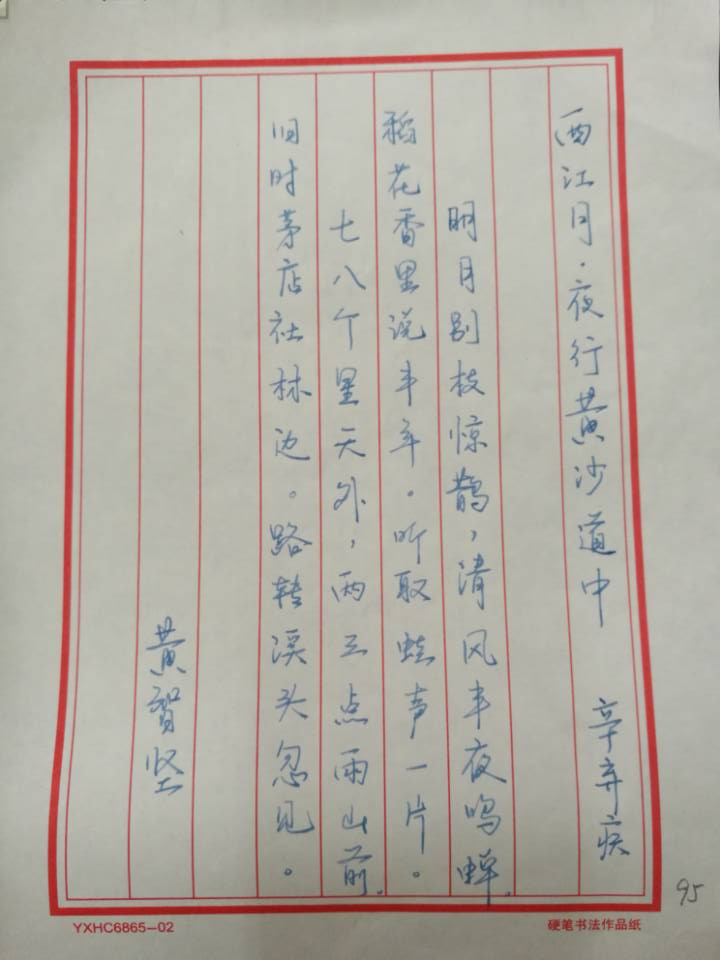 西江月·夜行黄沙道中 辛弃疾
明月别枝惊鹊,清风半夜鸣蝉。
稻花香里说丰年。听取蛙声一片。
七八个星天外,两三点雨山前。
旧时茅店社林边。路转溪头忽见。
黄贺坚
95
YXHC6865-02
硬笔书法作品纸